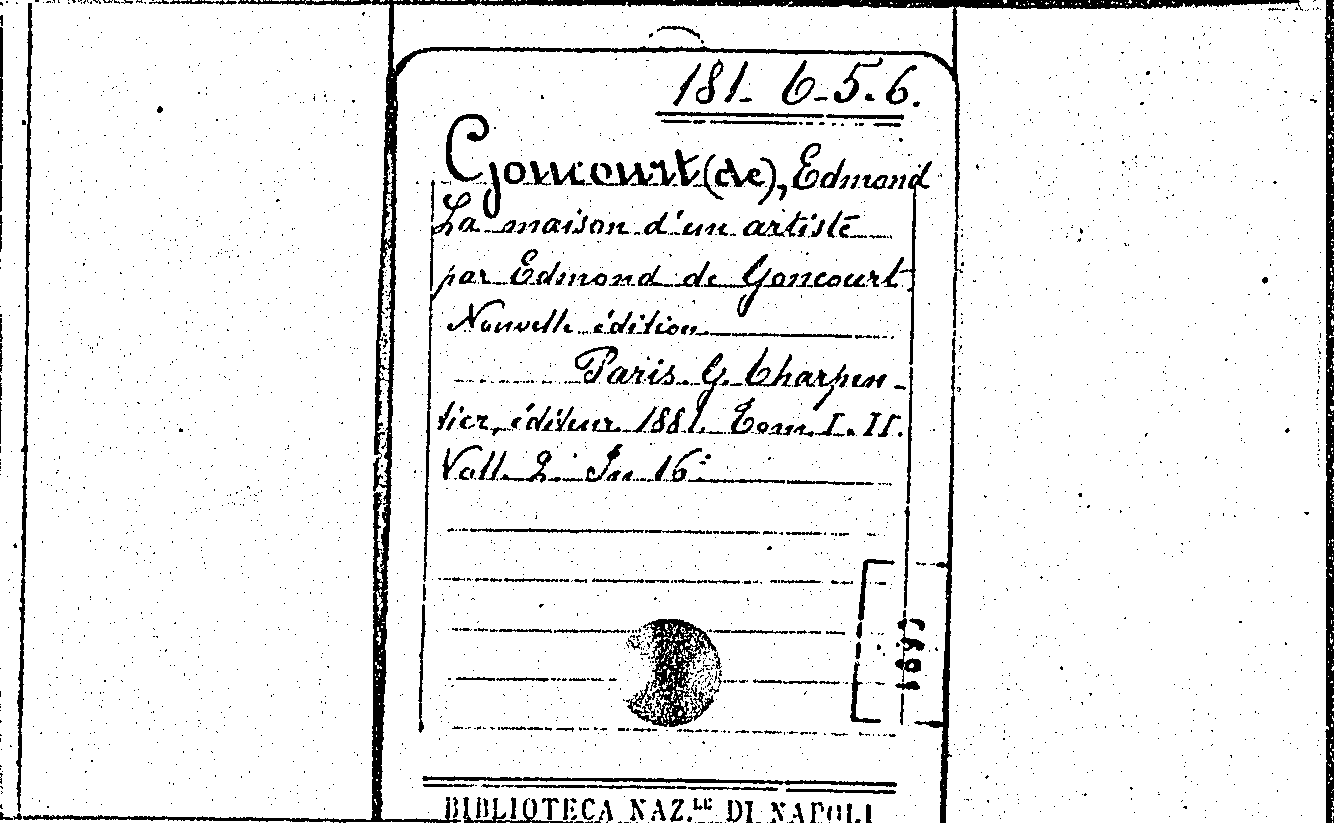 181. 6-5.6.
Goncourt (de), Edmond
La maison d'un artiste
par Edmond de Goncourt.
Nouvelle édition
Paris. G. Charpen-
tier, éditeur 1881. Tom. I. II.
Voll. 2. In 16º
BIBLIOTECA NAZ.LE DI NAPOLI